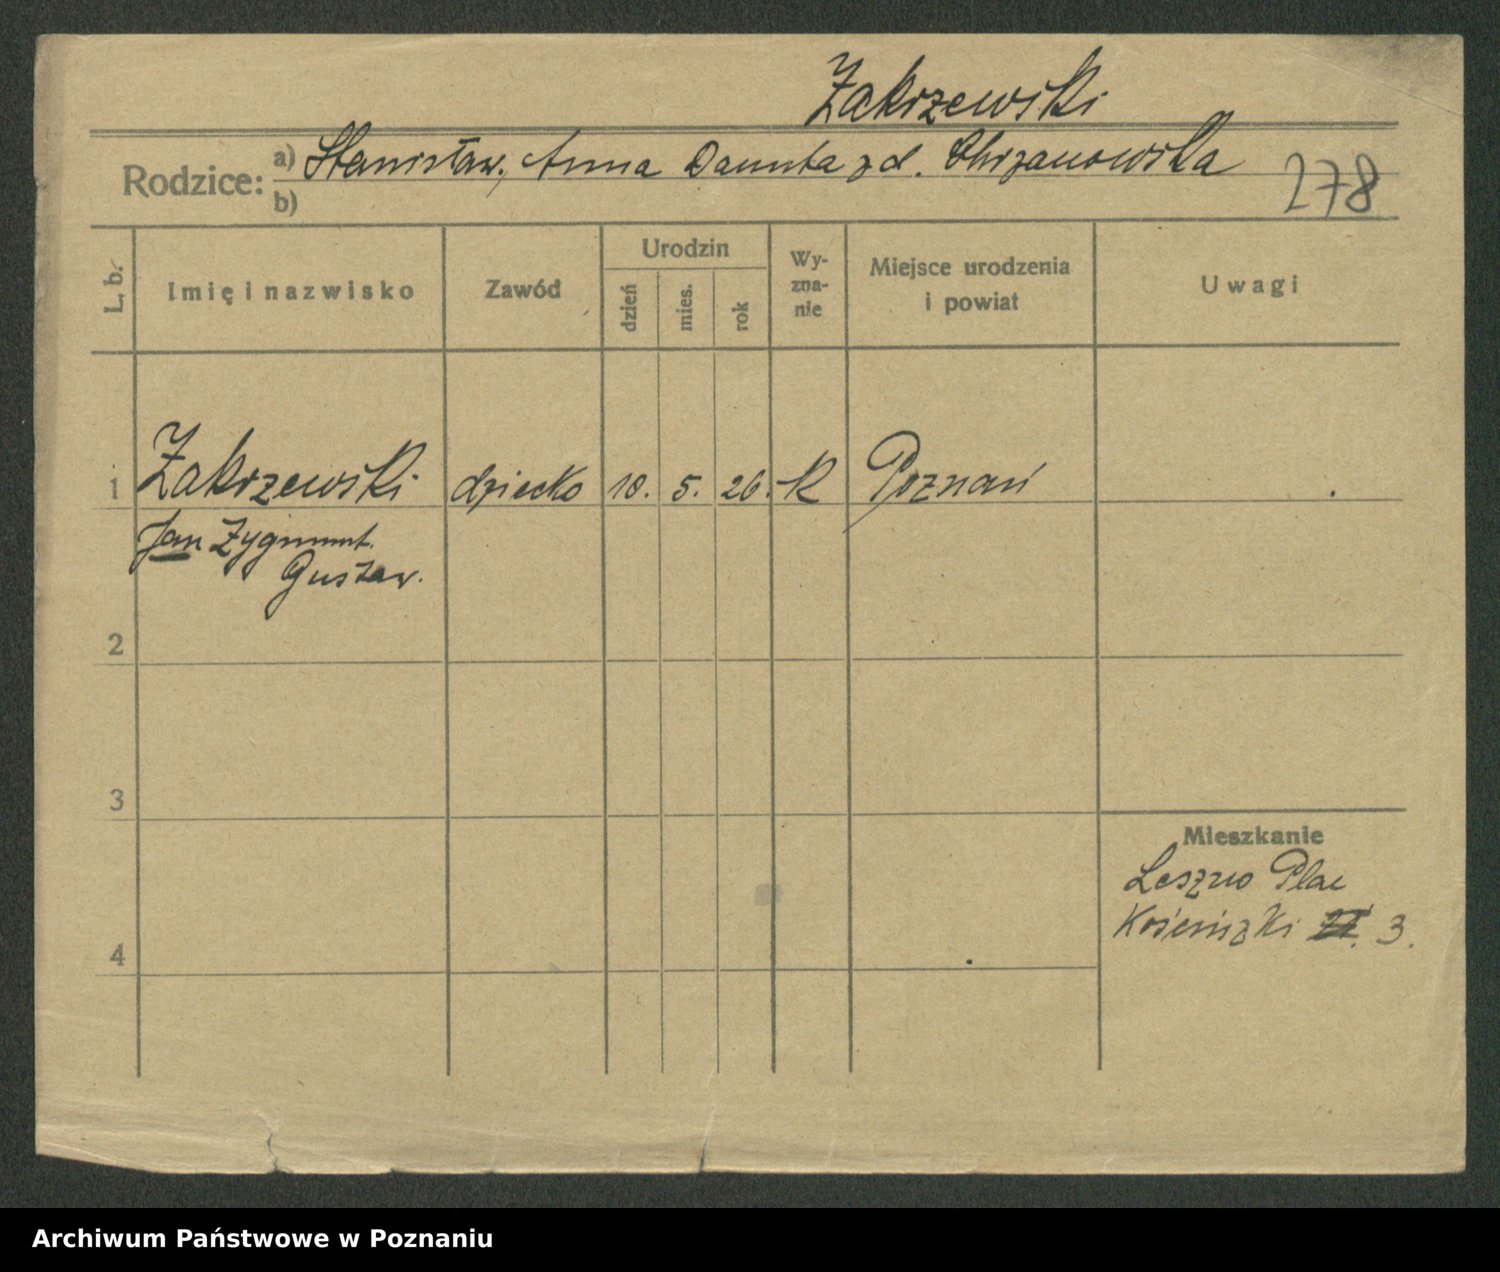 Zakrzewski
Rodzice: a) Stanisław, Anna Danuta zd. Chrzanowska
b)
278
L. b.
Imię i nazwisko
Zawód
Urodzin
dzień
mies.
rok
Wy-
zna-
nie
Miejsce urodzenia
i powiat
Uwagi
1 Zakrzewski dziecko 10. 5. 26. R Poznań
Jan Zygmunt
Gustaw.
2
3
Mieszkanie
Leszno Plac
Kościuszki 3.
4
Archiwum Państwowe w Poznaniu